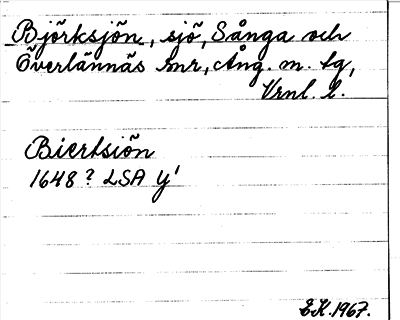 Björksjön, sjö, Sånga och
Överlännäs snr, Ång. m. tg,
Vrnl. l.
Biertsiön
1648? LSA y'
E.K. 1967.